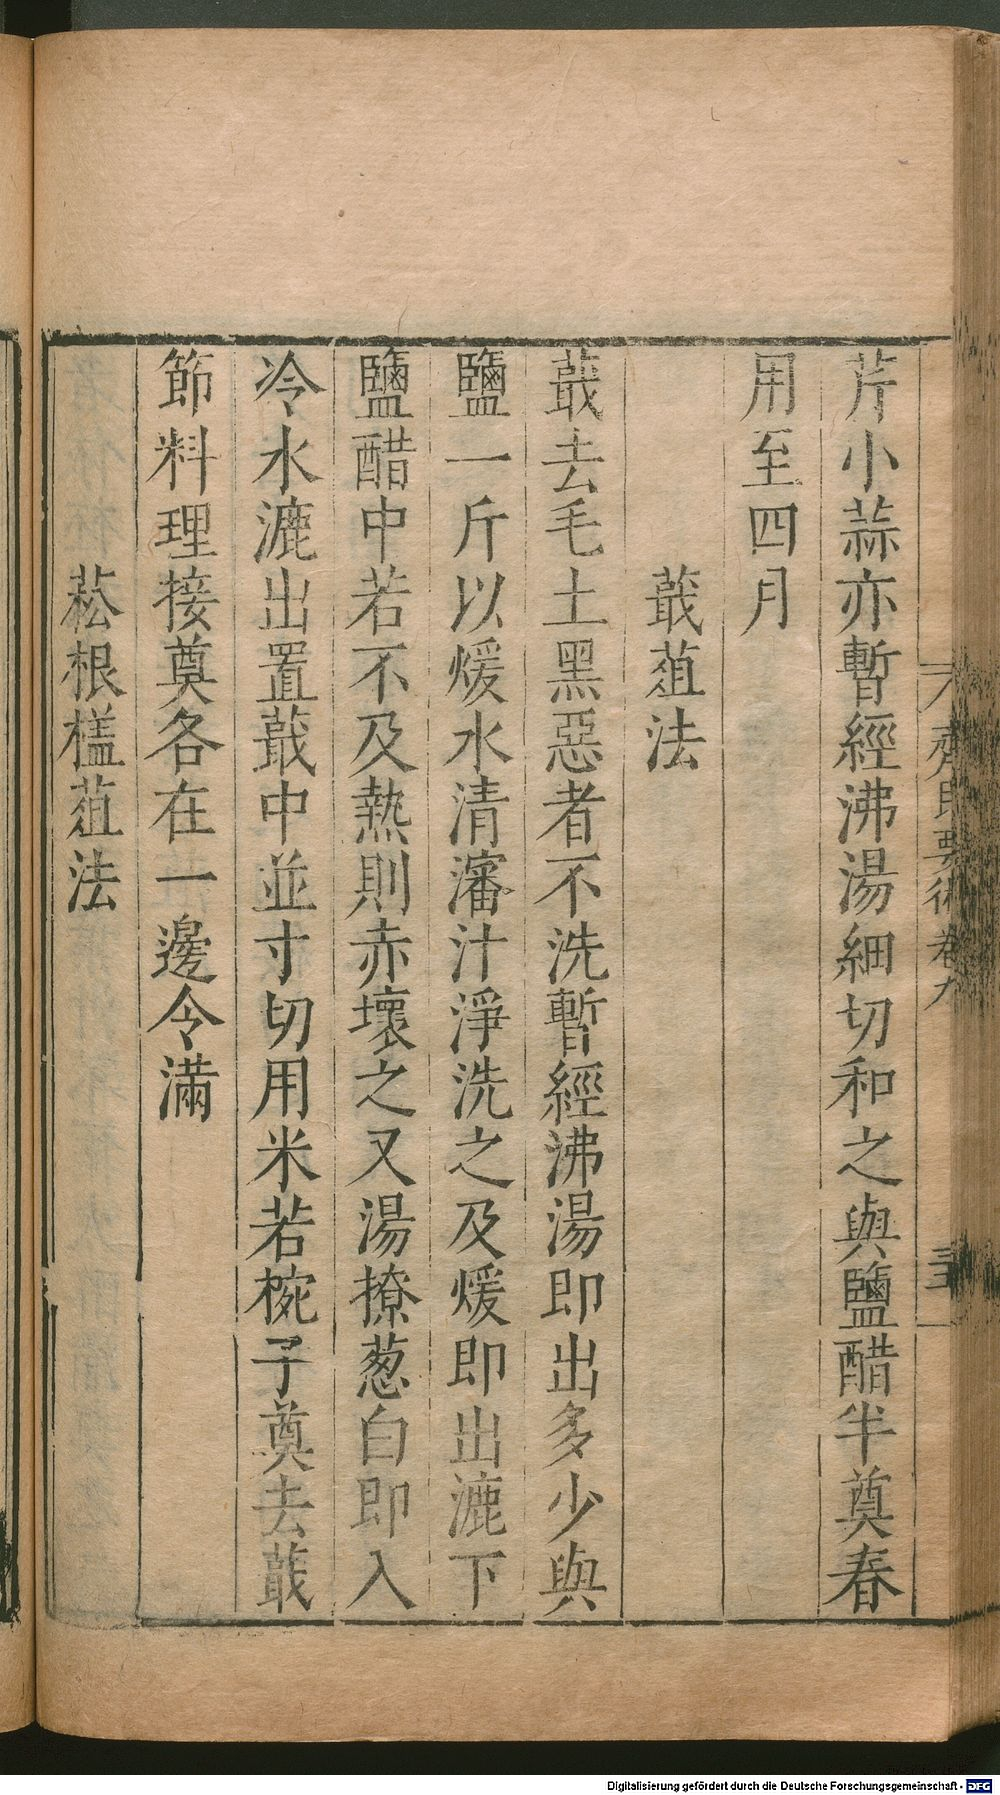 芹小蒜亦暫經沸湯細切和之與鹽醋半奠春
用至四月
蕺葅法
蕺去毛土黑惡者不洗暫經沸湯即出多少與
鹽一斤以煖水清瀋汁淨洗之及煖即出漉下
鹽醋中若不及熱則赤壞之又湯撩葱白即入
冷水漉出置蕺中並寸切用米若椀子奠去蕺
節料理接奠各在一邊令滿
菘根榼葅法
齊民要術卷九
Digitalisierung gefördert durch die Deutsche Forschungsgemeinschaft - DFG